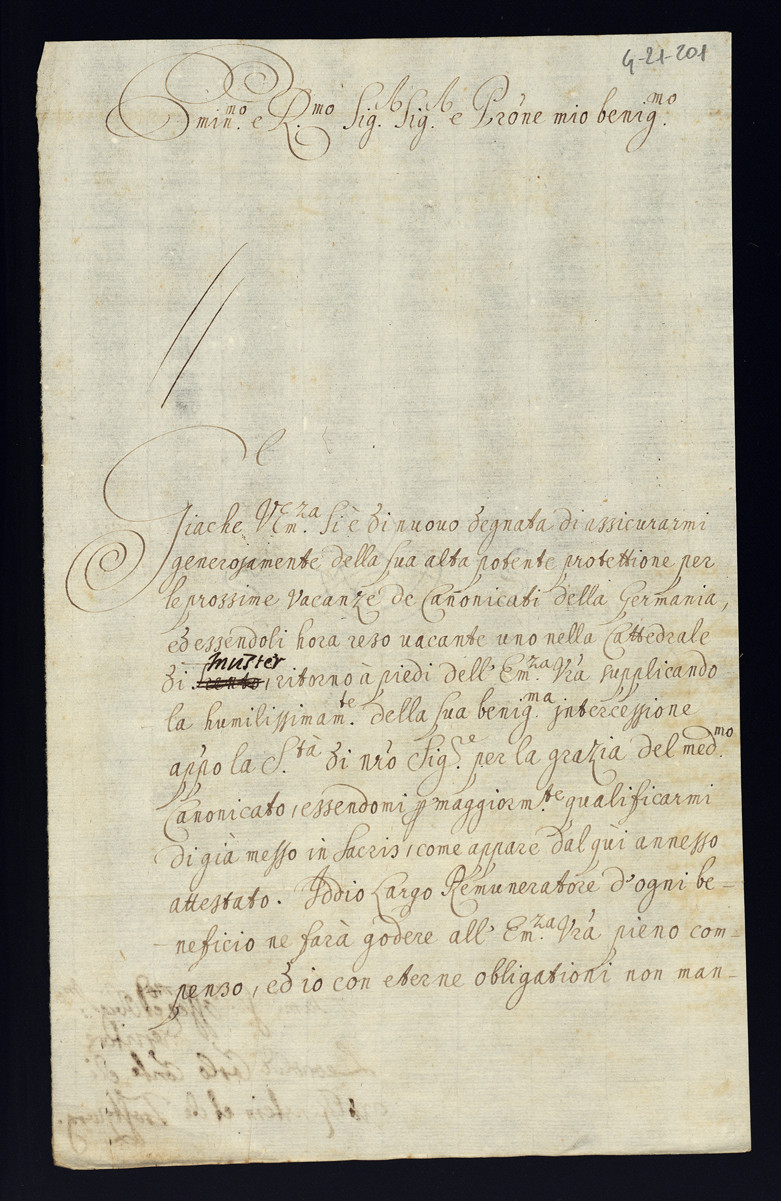 G-21-201
Emin.mo e R.mo Sig.r Sig.r e Prone mio benig.mo
Giache V.Em.za si è di nuovo degnata di assicurarmi
generosamente della sua alta potente protettione per
le prossime vacanze de Canonicati della Germania,
ed essendoli hora reso vacante uno nella Cattedrale
Munster
di, ritorno à piedi dell' Em.za Vrà supplicando
la humilissimam.te della sua benig.ma intercessione
appo la S.tà di nrò Sig.re per la grazia del med.mo
Canonicato, essendomi p maggiorm.te qualificarmi
di già messo in Sacris, come appare dal qùi annesso
attestato. Iddio Largo Remuneratore d'ogni be-
neficio ne farà godere all' Em.za Vrà pieno com-
penso, ed io con eterne obligationi non man-